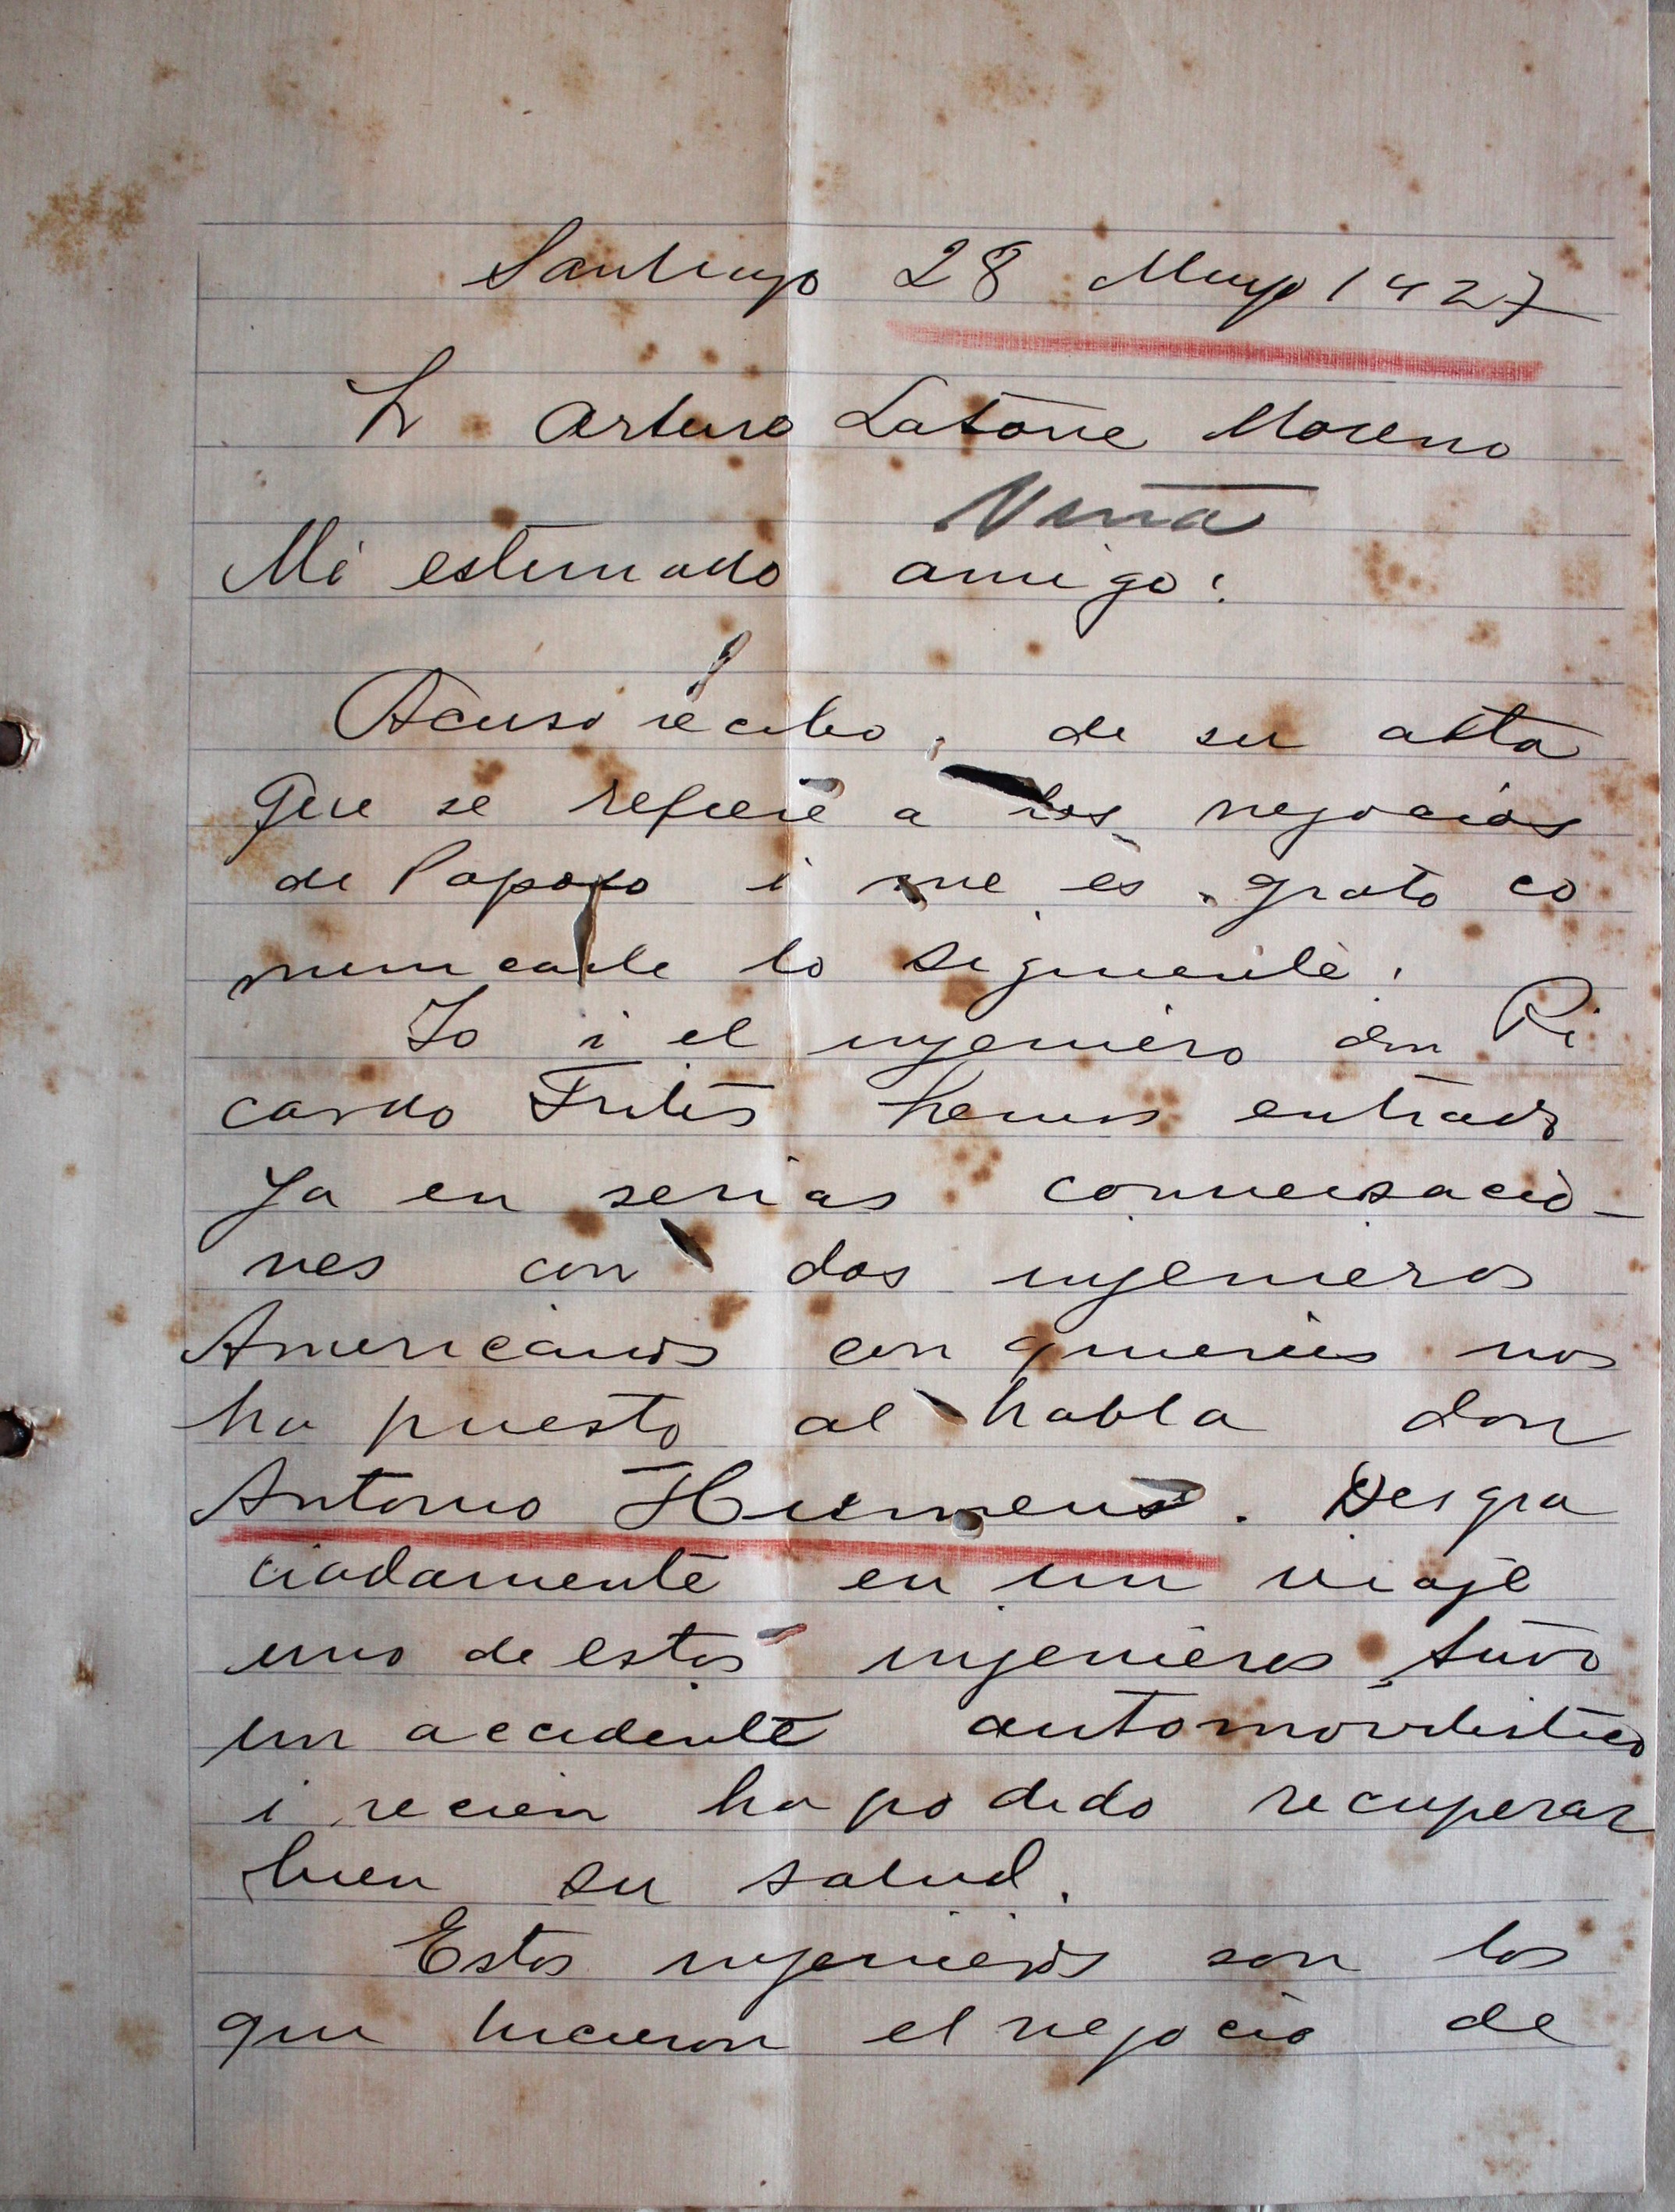 Santiago 28 Mayo 1927
Sr Arturo Latorre Moreno
Viña
Mi estimado amigo:
Acuso recibo, de su atta
que se refiere a los negocios
de Paposo i me es grato co
municarle lo siguiente:
Yo i el injeniero don Ri
cardo Fritis hemos entrado
ya en serias conversacio-
nes con dos injenieros
Americanos con quienes nos
ha puesto al habla don
Antonio. Desgra
ciadamente en un viaje
uno de estos injenieros tuvo
un accidente automovilistico
i recien ha podido recuperar
bien su salud.
Estos injenieros son los
que hicieron el negocio de